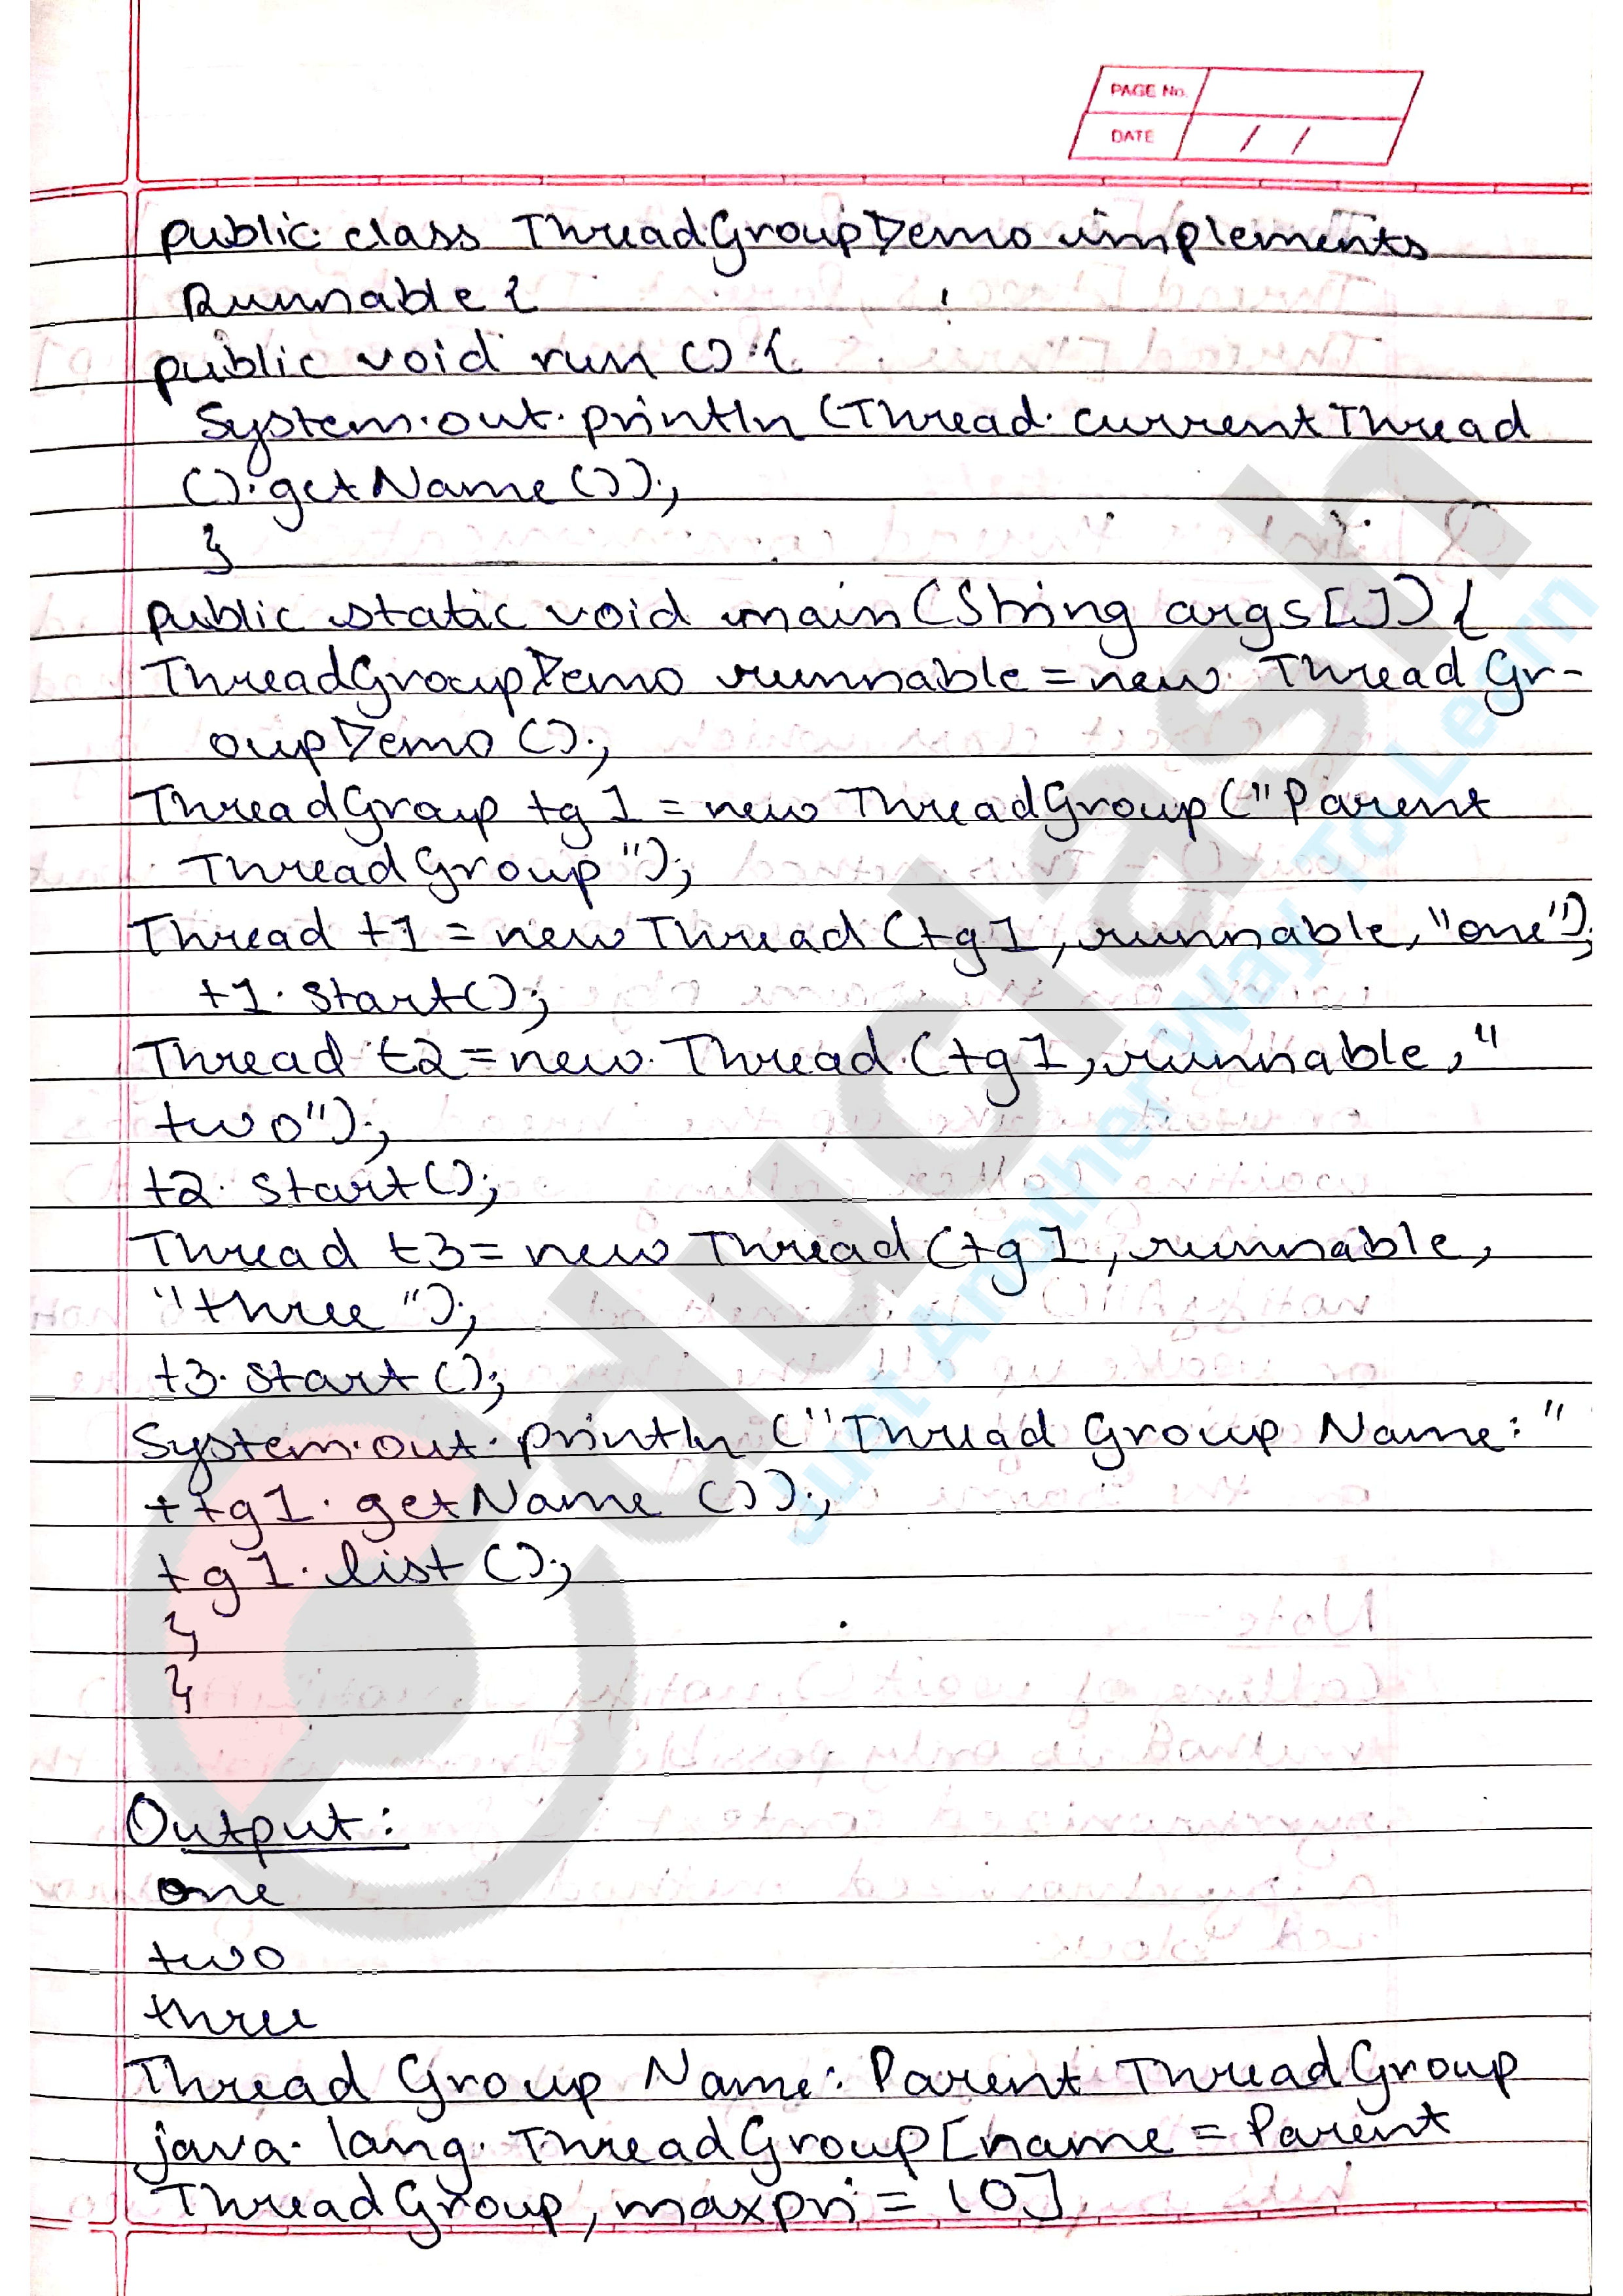 PAGE No.
DATE / /
public class ThreadGroupDemo implements
Runnable {
public void run () {
System.out.println (Thread.currentThread
().getName ());
}
public static void main (String args[]) {
ThreadGroupDemo runnable = new ThreadGr-
oupDemo ();
ThreadGroup tg1 = new ThreadGroup ("Parent
ThreadGroup");
Thread t1 = new Thread (tg1, runnable, "one");
t1.start();
Thread t2 = new Thread (tg1, runnable, "
two");
t2.start();
Thread t3 = new Thread (tg1, runnable,
"three");
t3.start ();
System.out.println ("Thread Group Name:"
+tg1.getName ());
tg1.list ();
}
}
Output:
one
two
three
Thread Group Name: Parent ThreadGroup
java.lang.ThreadGroup[name = Parent
ThreadGroup, maxpri = 10]
educlash
Just Another Way To Learn